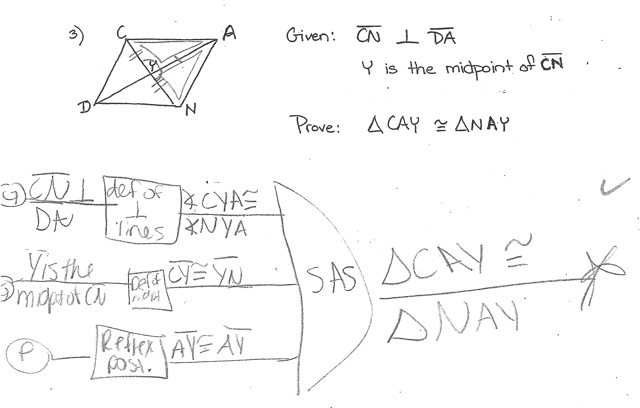 3) C A
Given: CN ⊥ DA
Y is the midpoint of CN
Y
D N
Prove: △CAY ≅ △NAY
G CN ⊥
DA
def of
⊥
lines
∡CYA ≅
∡NYA
Y is the
midpt of CN
Def of
CY ≅ YN
P
Reflex
post.
AY ≅ AY
SAS
△CAY ≅
△NAY